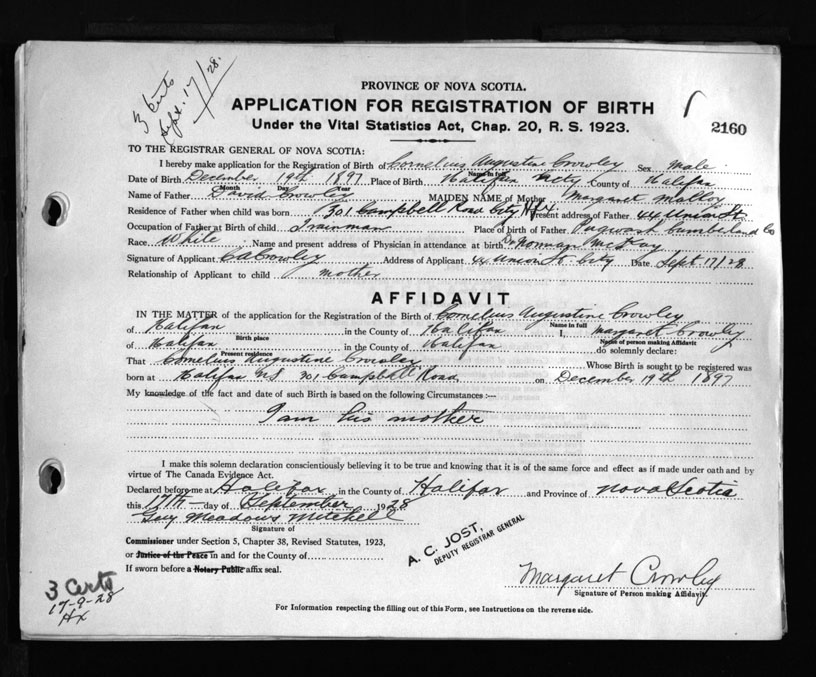 3 Certs
Sept. 17/28.
PROVINCE OF NOVA SCOTIA.
APPLICATION FOR REGISTRATION OF BIRTH
Under the Vital Statistics Act, Chap. 20, R. S. 1923.
2160
TO THE REGISTRAR GENERAL OF NOVA SCOTIA:
I hereby make application for the Registration of Birth of Cornelius Augustine Crowley Sex Male
Name in full
Date of Birth December 19th 1897 Place of Birth Halifax City County of Halifax
Month Day Year
Name of Father David Crowley MAIDEN NAME of Mother Margaret Malloy
Residence of Father when child was born 301 Campbell Road City Hfx Present address of Father 44 Union St
Occupation of Father at Birth of child Trainman Place of birth of Father Pugwash Cumberland Co
Race White Name and present address of Physician in attendance at birth Dr Norman McKay
Signature of Applicant CA Crowley Address of Applicant 44 Union St City Date Sept 17/28
Relationship of Applicant to child mother
AFFIDAVIT
IN THE MATTER of the application for the Registration of the Birth of Cornelius Augustine Crowley
Name in full
of Halifax in the County of Halifax I, Margaret Crowley
Birth place Name of person making Affidavit
of Halifax in the County of Halifax do solemnly declare:
Present residence
That Cornelius Augustine Crowley Whose Birth is sought to be registered was
born at Halifax N.S. 301 Campbell Road on December 19th 1897
My knowledge of the fact and date of such Birth is based on the following Circumstances :—
I am his mother
I make this solemn declaration conscientiously believing it to be true and knowing that it is of the same force and effect as if made under oath and by
virtue of The Canada Evidence Act.
Declared before me at Halifax in the County of Halifax and Province of Nova Scotia
this 17th day of September 1928
Guy Meadows Mitchell
Signature of
Commissioner under Section 5, Chapter 38, Revised Statutes, 1923,
or Justice of the Peace in and for the County of
If sworn before a Notary Public affix seal.
A. C. JOST,
DEPUTY REGISTRAR GENERAL
Margaret Crowley
Signature of Person making Affidavit.
3 Certs
17-9-28
Hx
For Information respecting the filling out of this Form, see Instructions on the reverse side.